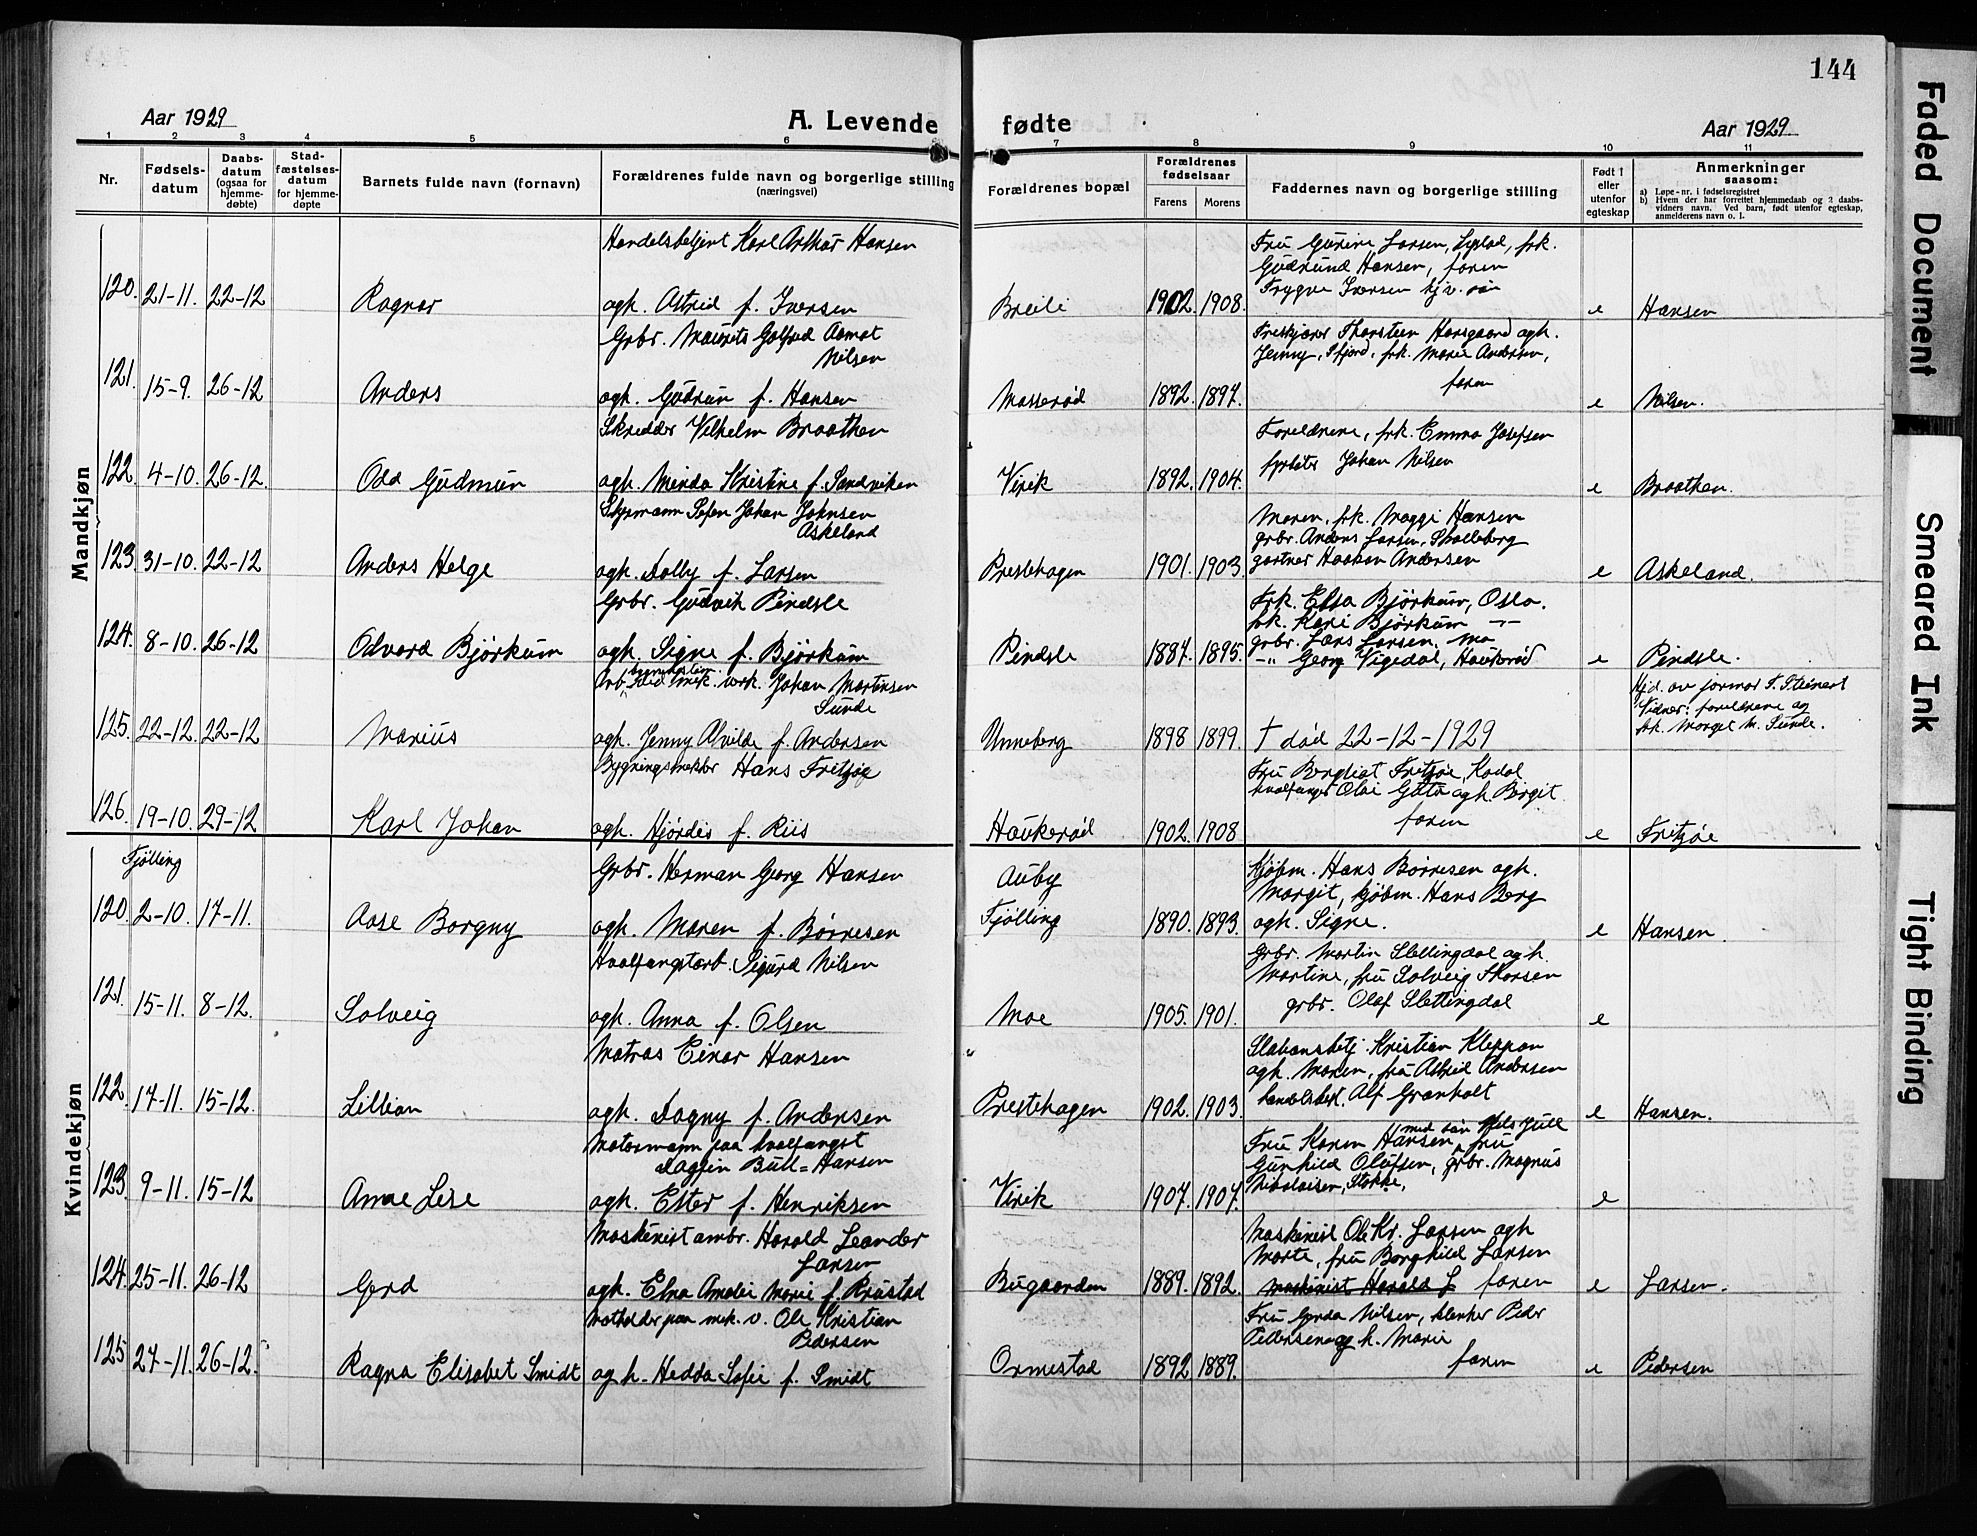 144
Aar 1929
A. Levende
fødte
Aar 1929
1 2 3 4 5 6 7 8 9 10 11
Nr.
Fødsels-
datum
Daabs-
datum
(ogsaa for
hjemme-
døbte)
Stad-
fæstelses-
datum
for hjemme-
døpte
Barnets fulde navn (fornavn)
Forældrenes fulde navn og borgerlige stilling
(næringsvei)
Forældrenes bopæl
Forældrenes
fødselsaar
Farens
Morens
Faddernes navn og borgerlige stilling
Født i
eller
utenfor
egteskap
Anmerkninger
saasom:
a) Løpe-nr. i fødselsregistret
b) Hvem der har forrettet hjemmedaab og 2 daabs-
vidners navn. Ved barn, født utenfor egteskap,
anmelderens navn o. l.
Mandkjøn
Handelsbetjent Karl Arthur Hansen
Fru Gurine Larsen, frk.
Gudrund Hansen, faren
Trygve Iversen
120. 21-11. 22-12 Ragnar agh. Astrid f. Iversen Breili 1902. 1908. e Hansen
Grbr. Maurits Gotfred Aamot
Nilsen
Thorsteen Haasgaard agh.
Jenny, frk. Marie Andersen,
faren
121. 15-9. 26-12 Anders agh. Gudrun f. Hansen Masserød 1892. 1897. e Nilsen.
Skredder Vilhelm Braathen
Foreldrene, frk. Emma Josefsen
Johan Nilsen
122. 4-10. 26-12. Odd Gudmun agh. Minda Kristine f. Sandviken Virik 1892. 1904. e Braathen.
Johan Johnsen
Askeland
Moren, frk. Maggi Hansen
grbr. Anders Larsen, Skolleborg
gartner Haakon Andersen
123. 31-10. 22-12 Anders Helge agh. Dolly f. Larsen Prestehagen 1901. 1903. e Askeland.
Grbr. Gudvik Pindsle
Frk. Elsa Bjørkum, Oslo.
frk. Kari Bjørkum -"-
grbr. Lars Larsen, Mo
-"- Georg Vigedal, Haukerød
124. 8-10. 26-12 Odvard Bjørkum agh. Signe f. Bjørkum Pindsle 1887. 1895. e Pindsle.
Arb. mek. verk. Johan Martinsen
Sunde
Hjd. av jormor T. Steinert
Vidner: foreldrene og
frk. Margit M. Sunde.
125. 22-12. 22-12 Marius agh. Jenny Alvilde f. Andersen Unneberg 1898 1899. † død 22-12-1929
Bygningssnekker Hans Fritzøe
Fru Bergliot Fritzøe, Kodal
hvalfanger Olai Gata agh. Borgit
faren
126. 19-10. 29-12 Karl Johan agh. Hjørdis f. Riis Haukerød 1902. 1908 e Fritzøe
Kvindekjøn
Tjølling
Grbr. Herman Georg Hansen
Auby
Tjølling
Kjøbm. Hans Børresen agh.
Margit, kjøbm. Hans Berg
agh. Signe.
120. 2-10. 17-11. Aase Borgny agh. Maren f. Børresen 1890. 1893. e Hansen.
Hvalfangstarb. Sigurd Nilsen
Grbr. Martin Slettingdal agh.
Martine, fru Solveig Thorsen
grbr. Olaf Slettingdal
121. 15-11. 8-12. Solveig agh. Anna f. Olsen Moe 1905. 1901. e
Matros Einar Hansen
Kristian Kleppan
agh. Maren, fru Astrid Andersen
Alf Granholt
122. 17-11. 15-12. Lillian agh. Dagny f. Andersen Prestehagen 1902. 1903. e Hansen.
Motormann paa hvalfangst
Dagfin Bull=Hansen
Fru Karen Hansen med søn Nels Jull fru
Gunhild Olufsen, grbr. Magnus
Nikolaisen, Stokke,
123. 9-11. 15-12 Anne Lise agh. Ester f. Henriksen Virik 1907. 1907. e
Maskinist ambr. Harald Leander
Larsen
Maskinist Ole Kr. Larsen agh
Marte, fru Borghild Larsen
maskinist Harald L faren
124. 25-11. 26-12 Gerd agh. Elna Amalie Marie f. Rustad Bugaarden 1889. 1892. e Larsen.
Motholder paa mek. v. Ole Kristian
Pedersen
Fru Gerda Nilsen, Peder
Pedersen og h. Marie
faren
125 27-11. 26-12. Ragna Elisabet Smidt agh. Hedda Sofie f. Smidt Ormestad 1892 1889. e Pedersen
Faded Document
Smeared Ink
Tight Binding